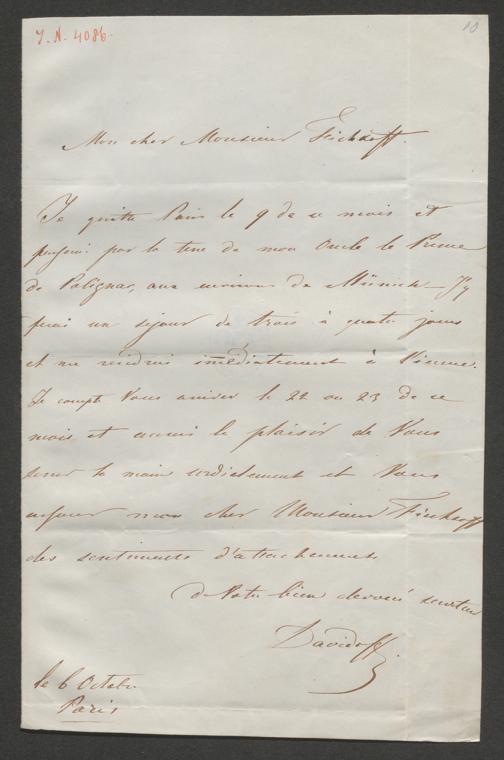 J. N. 4086.
10
Mon cher Monsieur Fischhoff.
Je quitte Paris le 9 de ce mois et
par la terre de mon Oncle le Prince
de Polignac, aux environs de Münich – J'y
ferai un séjour de trois à quatre jours
et me rendrai immédiatement à Vienne.
Je compte Vous arriver le 22 ou 23 de ce
mois et aurai le plaisir de Vous
serrer la main cordialement et Vous
assurer mon cher Monsieur Fischhoff
des sentiments d'attachement
de Votre bien devoué serviteur
Davidoff
le 6 Octobre
Paris